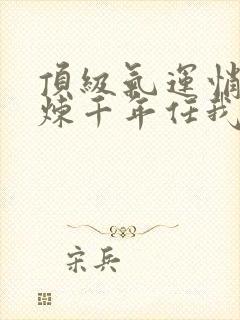 頂級氣運悄
煉千年任我
宋兵